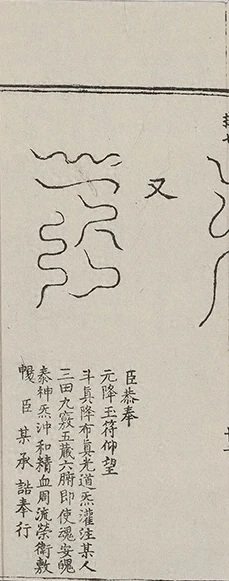 又
臣恭奉
元降玉符仰望
斗真降布真光道炁灌注某人
三田九竅五蔵六腑即使魂安魄
泰神炁沖和精血周流榮衛敷
臣某承誥奉行